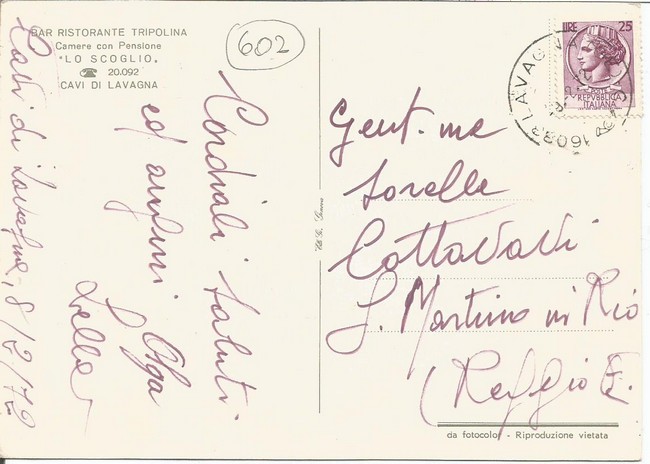 BAR RISTORANTE TRIPOLINA
Camere con Pensione
"LO SCOGLIO"
☎ 20.092
CAVI DI LAVAGNA
602
Cavi di Lavagna, 8/2/72
Cordiali saluti
ed auguri
Olga
Lella
LIRE 25
POSTE
REPUBBLICA
ITALIANA
16033 LAVAGNA
Gent.me
Sorelle
Cottavavi
S. Martino in Rio
(Reggio E.
da fotocolor - Riproduzione vietata